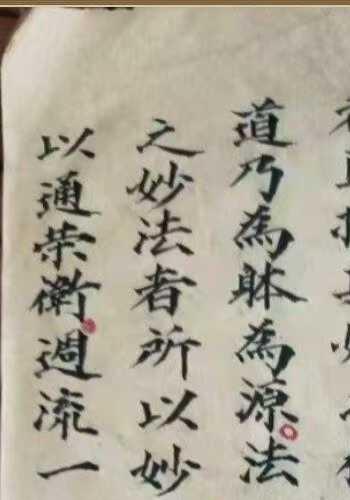 道乃為躰為源法
之妙法者所以妙
以通荣衛週流一